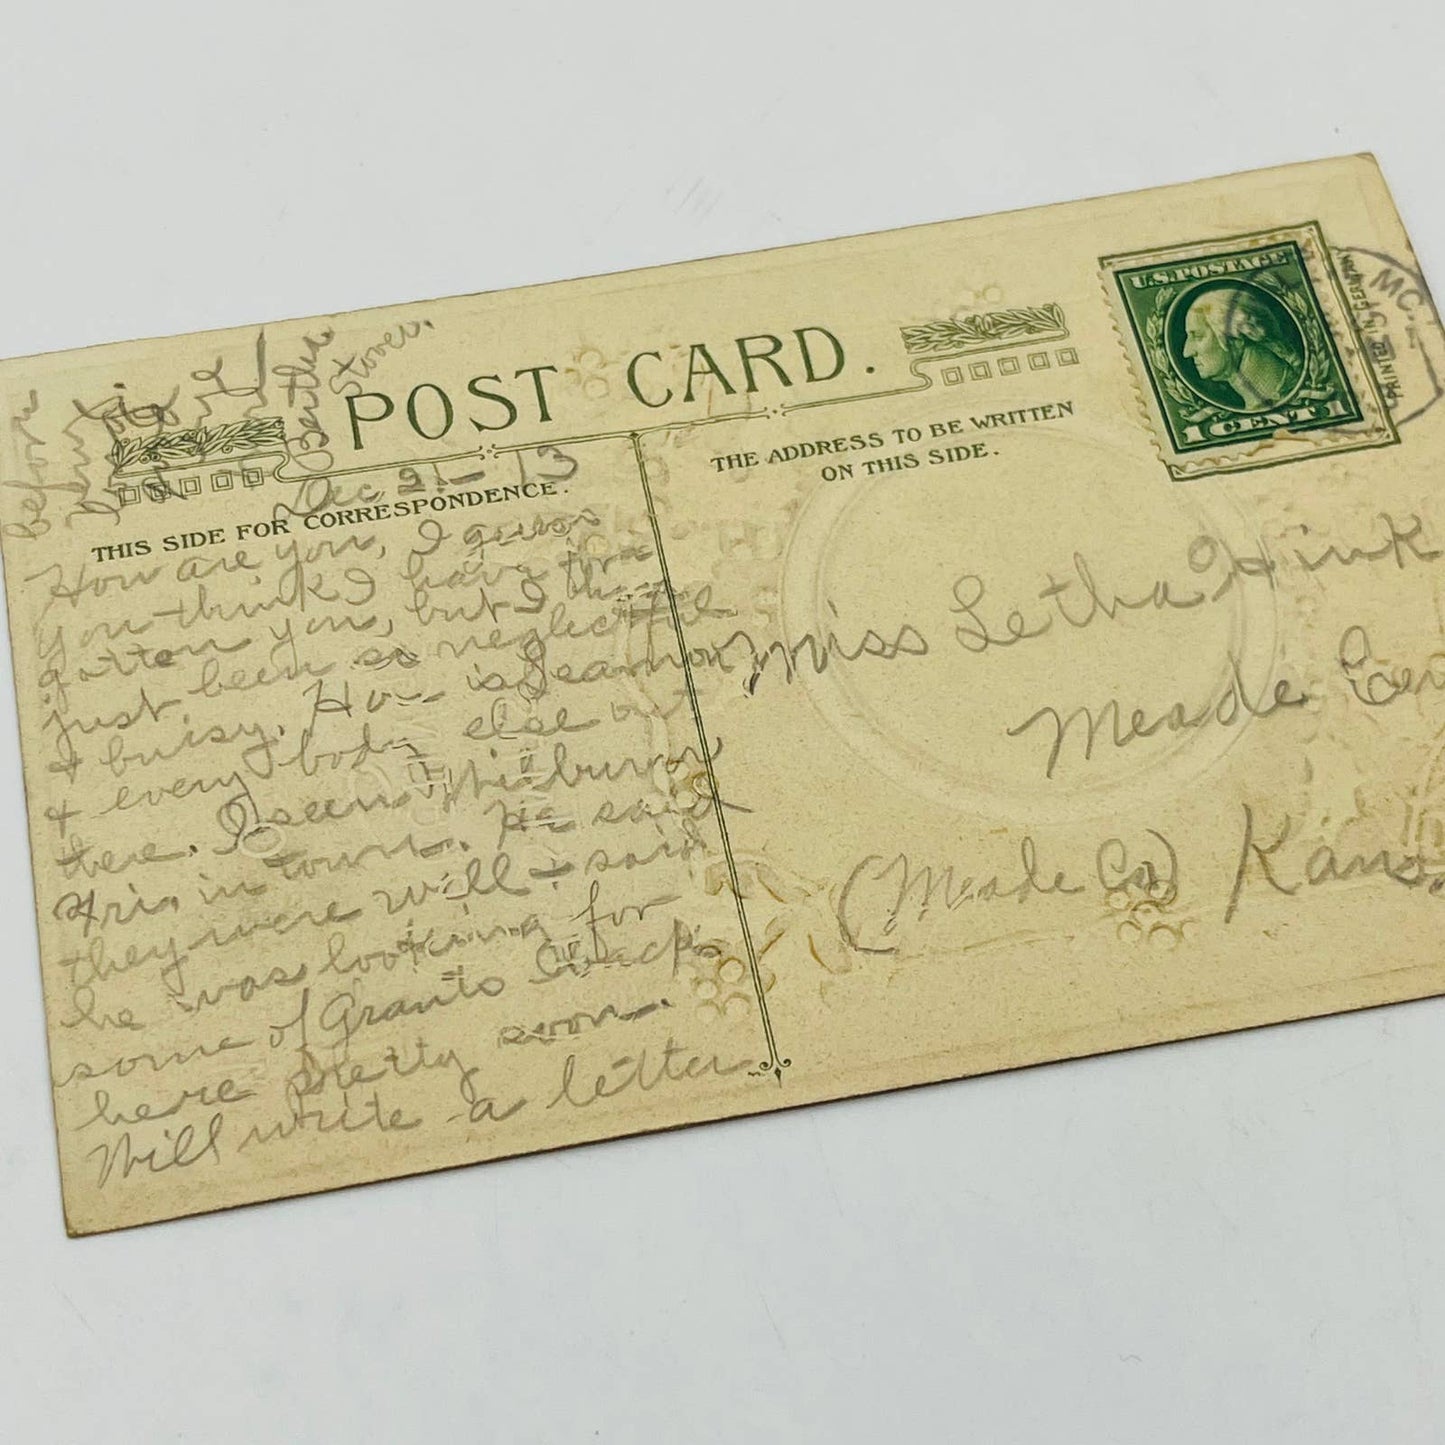 POST CARD.
THIS SIDE FOR CORRESPONDENCE.
THE ADDRESS TO BE WRITTEN
ON THIS SIDE.
U.S. POSTAGE
1 CENT 1
PRINTED IN GERMANY
MC
Dec 21 - 13
How are you, I guess
you think I have for
gotten you, but I have
just been so neglectful
& buisy. How is Seamon
& every body else out
there. I seen Wilburn
Fri. in town. He said
they were well & said
he was looking for
some of Grants back
here pretty soon.
Will write a letter
before
Bertha
Stover.
Miss Letha Hink
Meade Cen
(Meade Co) Kans.